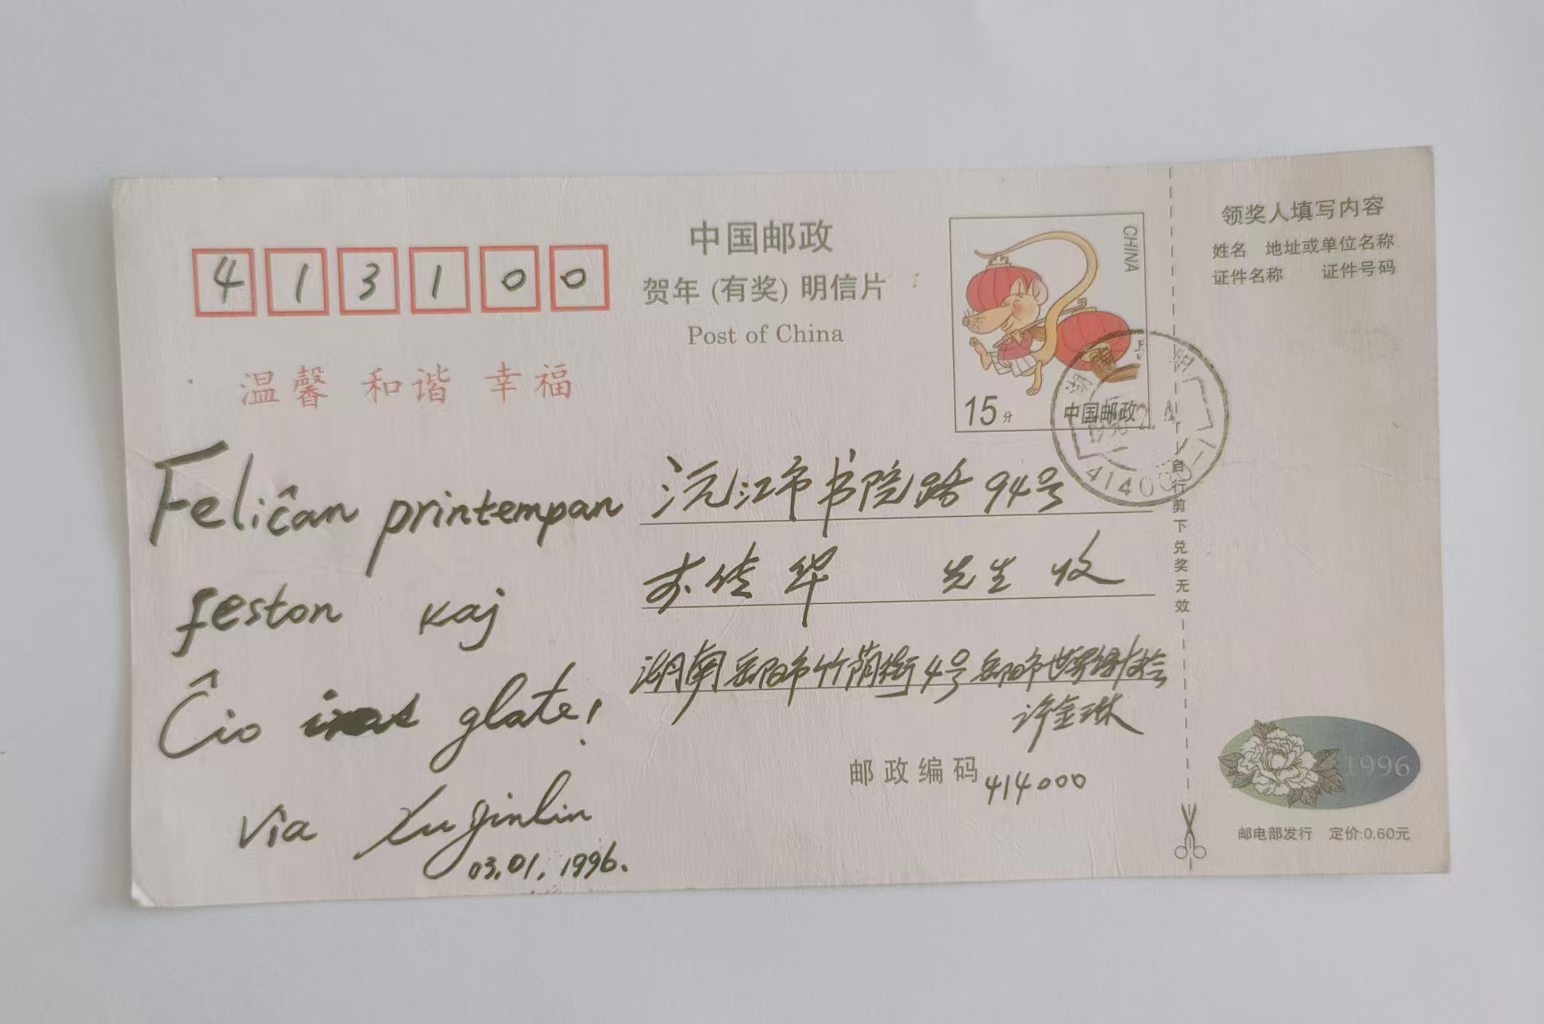 413100
中国邮政
贺年(有奖)明信片
Post of China
温馨 和谐 幸福
CHINA
15分
中国邮政
领奖人填写内容
姓名 地址或单位名称
证件名称 证件号码
自行剪下兑奖无效
Feliĉan printempan
feston kaj
Ĉio glate!
via Xu Jinlin
03.01.1996.
沅江市书院路94号
佳华 先生 收
湖南岳阳市竹荫街4号岳阳市世界语协会
许金琳
邮政编码 414000
1996
邮电部发行 定价:0.60元